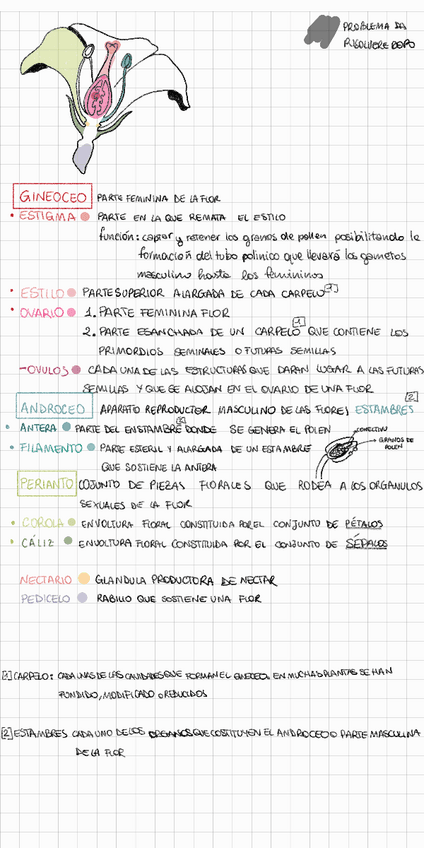 PROBLEMA DA
RISOLVERE DOPO
GINEOCEO PARTE FEMININA DE LA FLOR
• ESTIGMA PARTE EN LA QUE REMATA EL ESTILO
función: captar y retener los granos de pollen posibilitando le
formación del tubo polinico que llevará los gametos
masculino hasta los femininos
• ESTILO PARTE SUPERIOR ALARGADA DE CADA CARPELO [1]
• OVARIO 1. PARTE FEMININA FLOR
2. PARTE ESANCHADA DE UN CARPELO [1] QUE CONTIENE LOS
PRIMORDIOS SEMINALES O FUTURAS SEMILLAS
-OVULOS CADA UNA DE LAS ESTRUCTURAS QUE DARAN LUGAR A LAS FUTURAS
SEMILLAS Y QUE SE ALOJAN EN EL OVARIO DE UNA FLOR
ANDROCEO APARATO REPRODUCTOR MASCULINO DE LAS FLORES ESTAMBRES [2]
• ANTERA PARTE DEL ENSTAMBRE [2] DONDE SE GENERA EL POLEN
CONECTIVO
GRANOS DE
POLEN
• FILAMENTO PARTE ESTERIL Y ALARGADA DE UN ESTAMBRE
QUE SOSTIENE LA ANTERA
PERIANTO COJUNTO DE PIEZAS FLORALES QUE RODEA A LOS ORGANULOS
SEXUALES DE LA FLOR
• COROLA ENVOLTURA FLORAL CONSTITUIDA POR EL CONJUNTO DE PÉTALOS
• CÁLIZ ENVOLTURA FLORAL CONSTITUIDA POR EL CONJUNTO DE SÉPALOS
NECTARIO GLANDULA PRODUCTORA DE NECTAR
PEDICELO RABILLO QUE SOSTIENE UNA FLOR
[1] CARPELO: CADA UNAS DE LAS CAVIDADES QUE FORMAN EL GINECEO. EN MUCHAS PLANTAS SE HAN
FUNDIDO, MODIFICADO O REDUCIDOS
[2] ESTAMBRES CADA UNO DE LOS ORGANOS QUE COSTITUYEN EL ANDROCEO O PARTE MASCULINA
DE LA FLOR